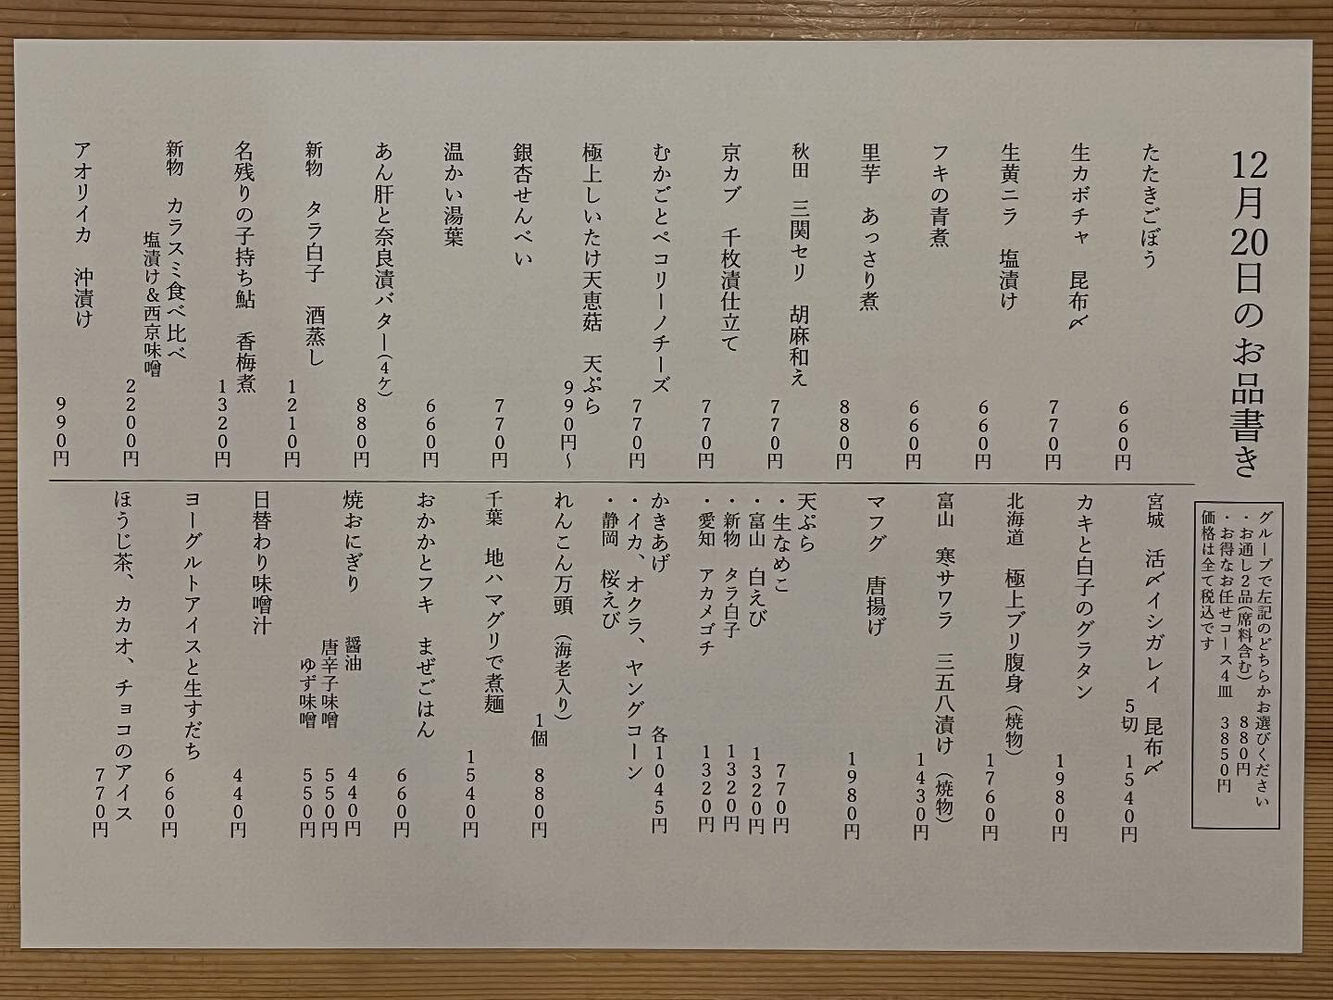 12月20日のお品書き
グループで左記のどちらかお選びください
・お通し2品(席料含む) 880円
・お得なお任せコース4皿 3850円
価格は全て税込です
たたきごぼう 660円
生カボチャ 昆布〆 770円
生黄ニラ 塩漬け 660円
フキの青煮 660円
里芋 あっさり煮 880円
秋田 三関セリ 胡麻和え 770円
京カブ 千枚漬仕立て 770円
むかごとペコリーノチーズ 770円
極上しいたけ天恵菇 天ぷら 990円~
銀杏せんべい 770円
温かい湯葉 660円
あん肝と奈良漬バター(4ケ) 880円
新物 タラ白子 酒蒸し 1210円
名残りの子持ち鮎 香梅煮 1320円
新物 カラスミ食べ比べ
塩漬け&西京味噌 2200円
アオリイカ 沖漬け 990円
宮城 活〆イシガレイ 昆布〆
5切 1540円
カキと白子のグラタン 1980円
北海道 極上ブリ腹身(焼物) 1760円
富山 寒サワラ 三五八漬け(焼物) 1430円
マフグ 唐揚げ 1980円
天ぷら
・生なめこ 770円
・富山 白えび 1320円
・新物 タラ白子 1320円
・愛知 アカメゴチ 1320円
かきあげ 各1045円
・イカ、オクラ、ヤングコーン
・静岡 桜えび
れんこん万頭(海老入り)
1個 880円
千葉 地ハマグリで煮麺 1540円
おかかとフキ まぜごはん 660円
焼おにぎり 醤油 440円
唐辛子味噌 550円
ゆず味噌 550円
日替わり味噌汁 440円
ヨーグルトアイスと生すだち 660円
ほうじ茶、カカオ、チョコのアイス 770円